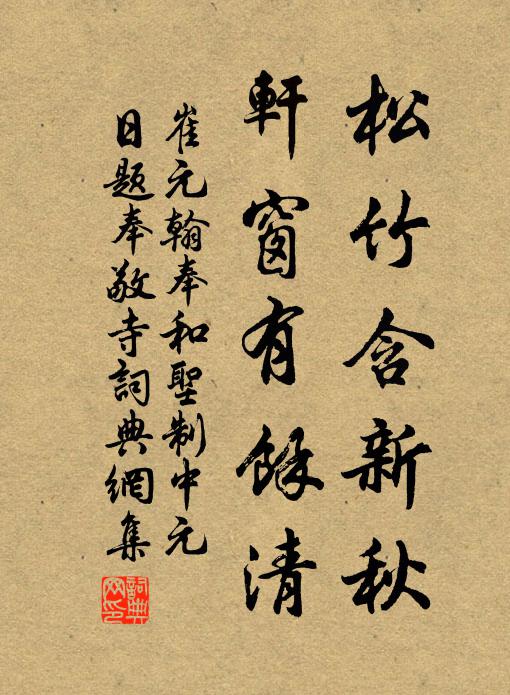 松竹含新秋
軒窗有餘清
崔元翰奉和聖制中元
日題奉敬寺詞典網集
詞典
网印